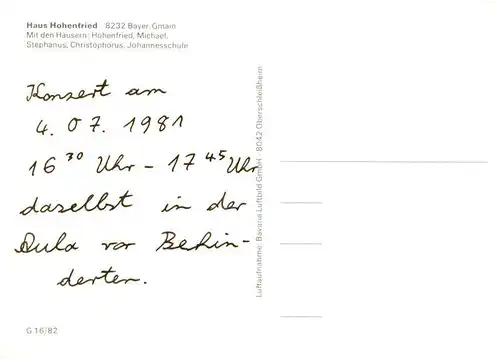 Haus Hohenfried 8232 Bayer. Gmain
Mit den Häusern: Hohenfried, Michael,
Stephanus, Christophorus, Johannesschule
Konzert am
4. 07. 1981
16³⁰ Uhr – 17⁴⁵ Uhr
daselbst in der
Aula vor Behin-
derten.
G 16/82
Luftaufnahme: Bavaria Luftbild GmbH · 8042 Oberschleißheim